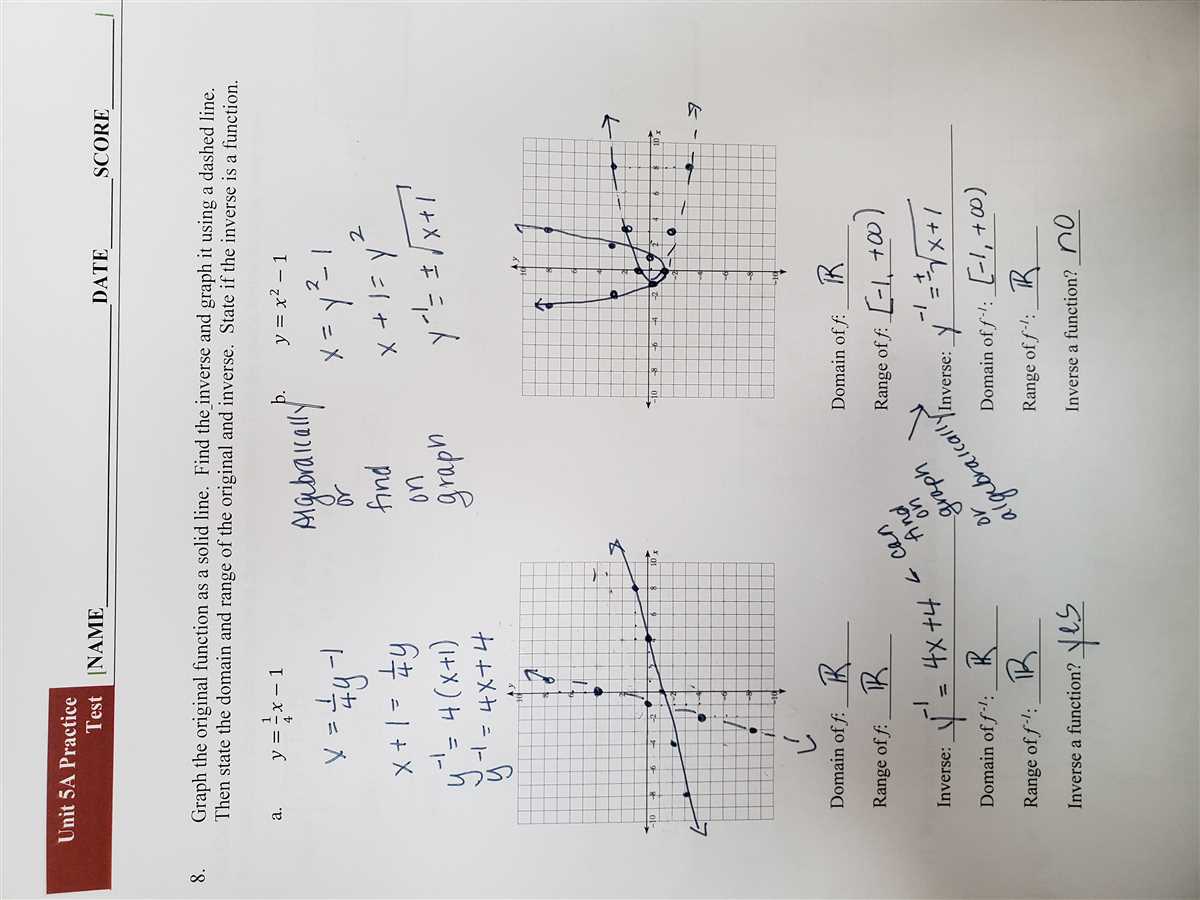 Unit 5A Practice
Test
NAME
DATE
SCORE
8. Graph the original function as a solid line. Find the inverse and graph it using a dashed line.
Then state the domain and range of the original and inverse. State if the inverse is a function.
a. y = 1/4 x − 1
x = 1/4 y − 1
x + 1 = 1/4 y
y⁻¹ = 4(x+1)
y⁻¹ = 4x + 4
Algebraically
or
find
on
graph
b. y = x² − 1
x = y² − 1
x + 1 = y²
y⁻¹ = ± √x+1
Domain of f: ℝ
Range of f: ℝ
Inverse: y⁻¹ = 4x + 4
can
find
on
graph
or
algebraically
Domain of f⁻¹: ℝ
Range of f⁻¹: ℝ
Inverse a function? yes
Domain of f: ℝ
Range of f: [-1, +∞)
Inverse: y⁻¹ = ±√x+1
Domain of f⁻¹: [-1, +∞)
Range of f⁻¹: ℝ
Inverse a function? no